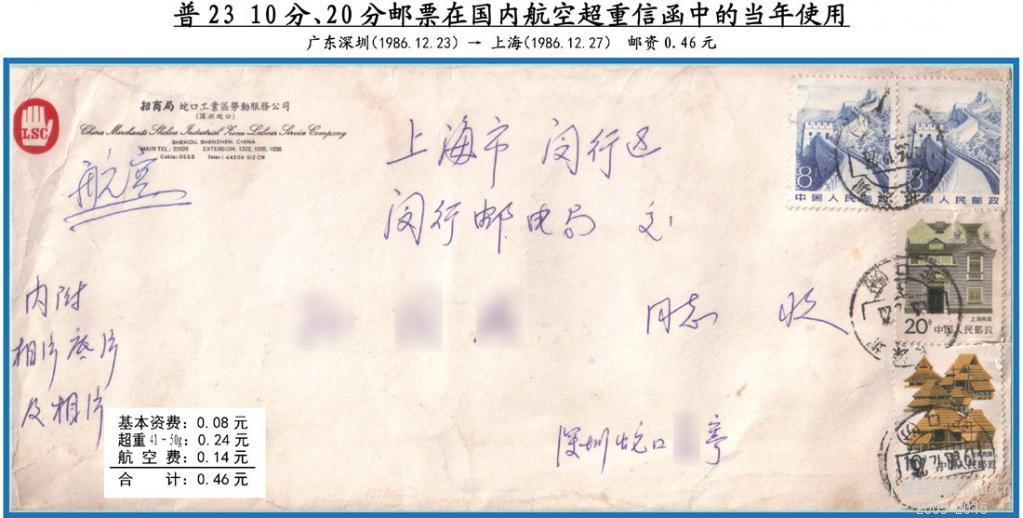 普23 10分、20分邮票在国内航空超重信函中的当年使用
广东深圳(1986.12.23) → 上海(1986.12.27) 邮资0.46元
LSC
招商局 蛇口工業區勞動服務公司
(深圳蛇口)
China Merchants Shekou Industrial Zone Labour Service Company
SHEKOU, SHENZHEN, CHINA
航空
上海市 闵行区
闵行邮电局 交
同志 收
内附
相片底片
及相片
深圳蛇口
8
中国人民邮政
8
中国人民邮政
上海民居
20分 中国人民邮政
10
中国人民邮政
基本资费: 0.08 元
超重41-50g: 0.24 元
航空费: 0.14 元
合计: 0.46 元
2003-2015